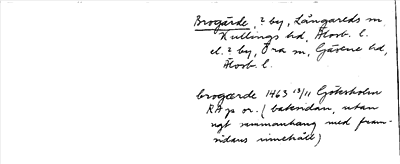 Brogärde, ? by, Långareds sn,
Kullings hd, Älvsb. l.
el. ? by, Öra sn, Gäsene hd,
Älvsb. l.
brogærde 1463 13/11 Göteholm
RAp or. (baksidan, utan
ngt sammanhang med fram-
sidans innehåll)